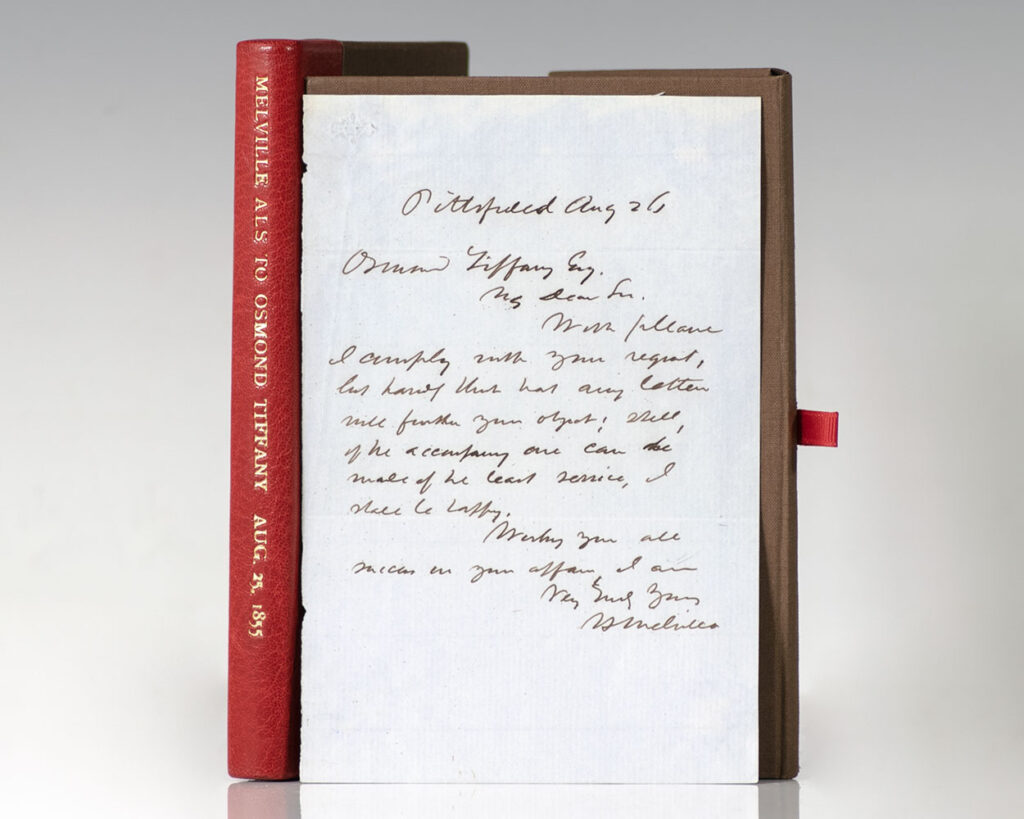 MELVILLE ALS TO OSMOND TIFFANY AUG. 25, 1855
Pittsfield Aug 26
Osmond Tiffany Esq.
My Dear Sir.
With pleasure
I comply with your request,
but that any letter
will further your object; still,
if the accompanying one can be
made of the least service, I
shall be happy.
Wishing you all
success in your affair I am
Very Truly Yours
H Melville